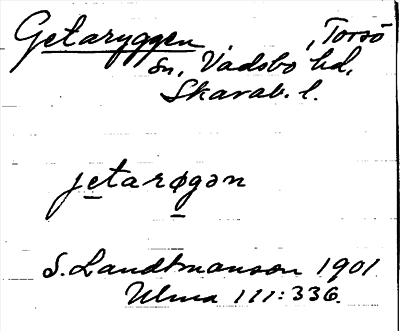 Getaryggen, Torsö
sn, Vadsbo hd.
Skarab. l.
jetarøgən
S. Landtmanson 1901
Ulma 111:336.